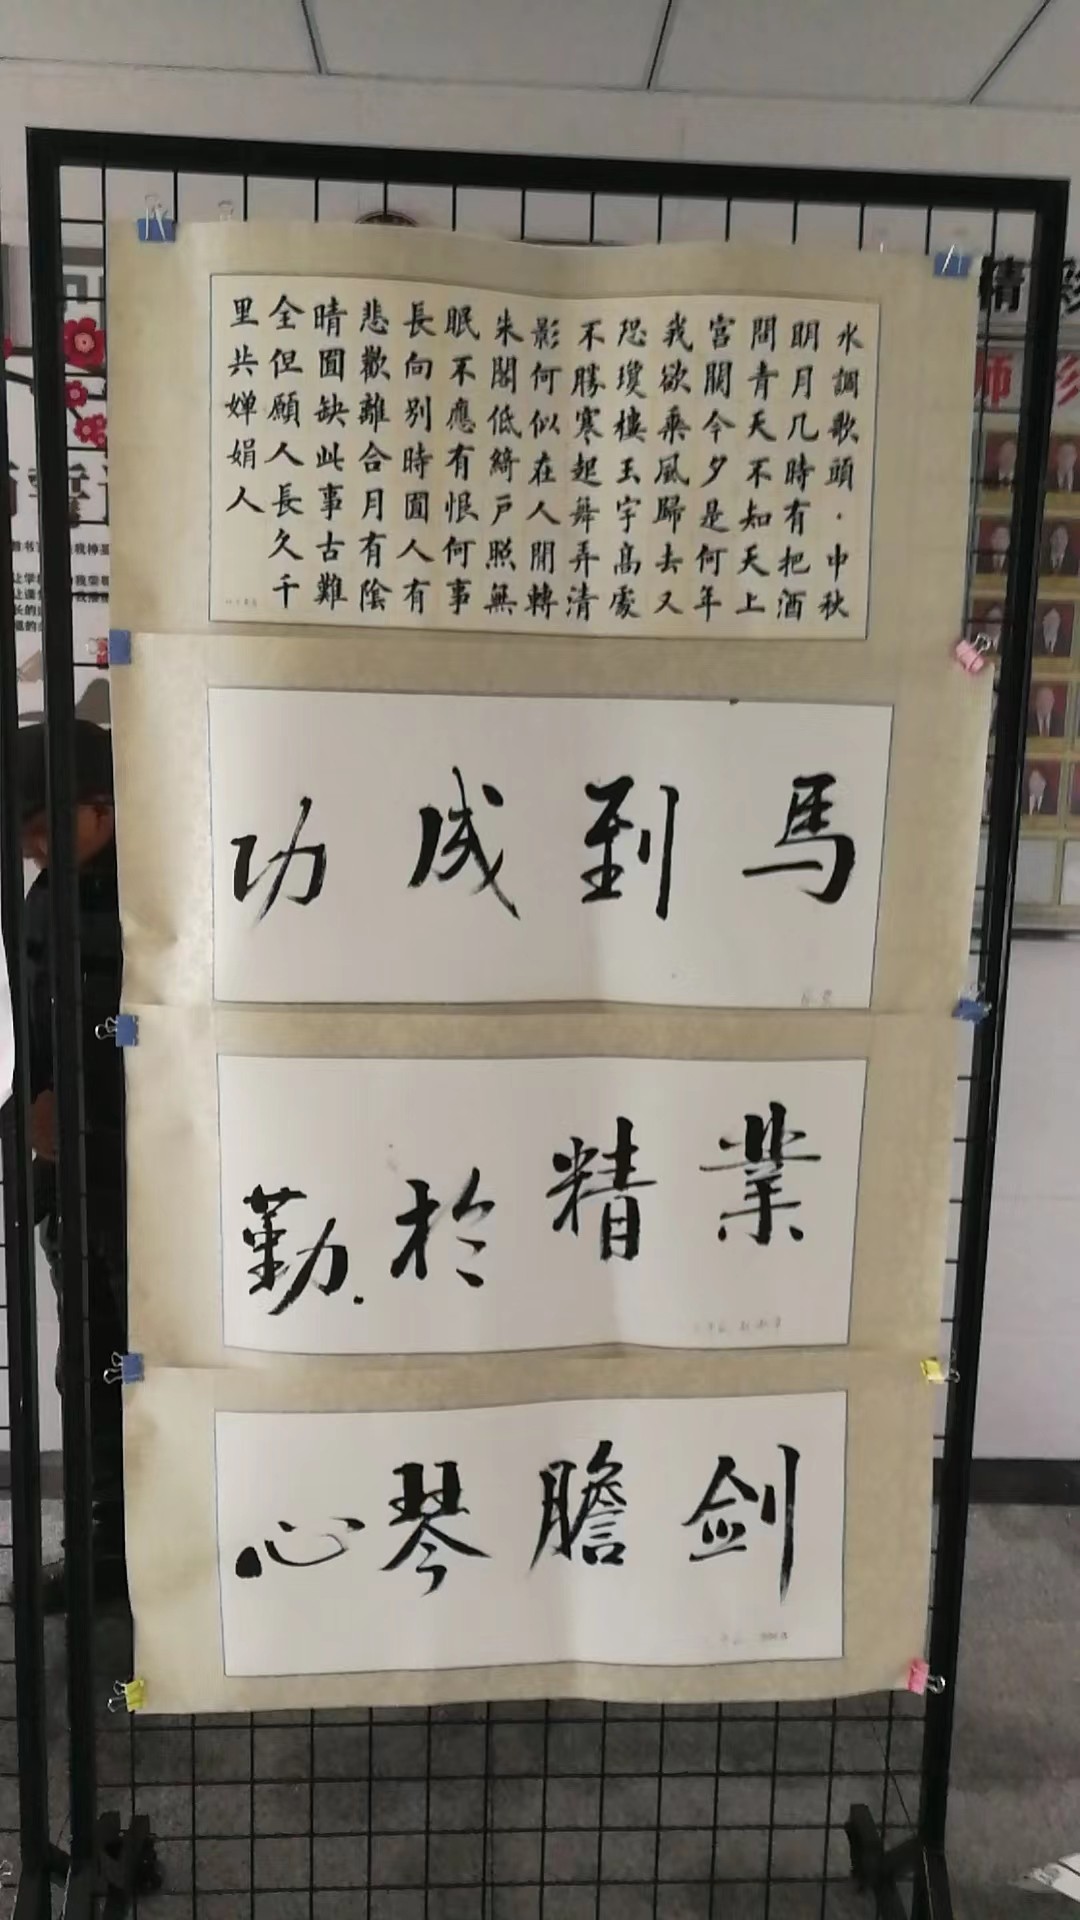 水調歌頭·中秋
明月几時有把酒
問青天不知天上
宮闕今夕是何年
我欲乘風歸去又
恐瓊樓玉宇高處
不勝寒起舞弄清
影何似在人間轉
朱閣低綺戶照無
眠不應有恨何事
長向别時圓人有
悲歡離合月有陰
晴圓缺此事古難
全但願人長久千
里共婵娟人
馬到成功
業精於勤
剑膽琴心
精彩
师